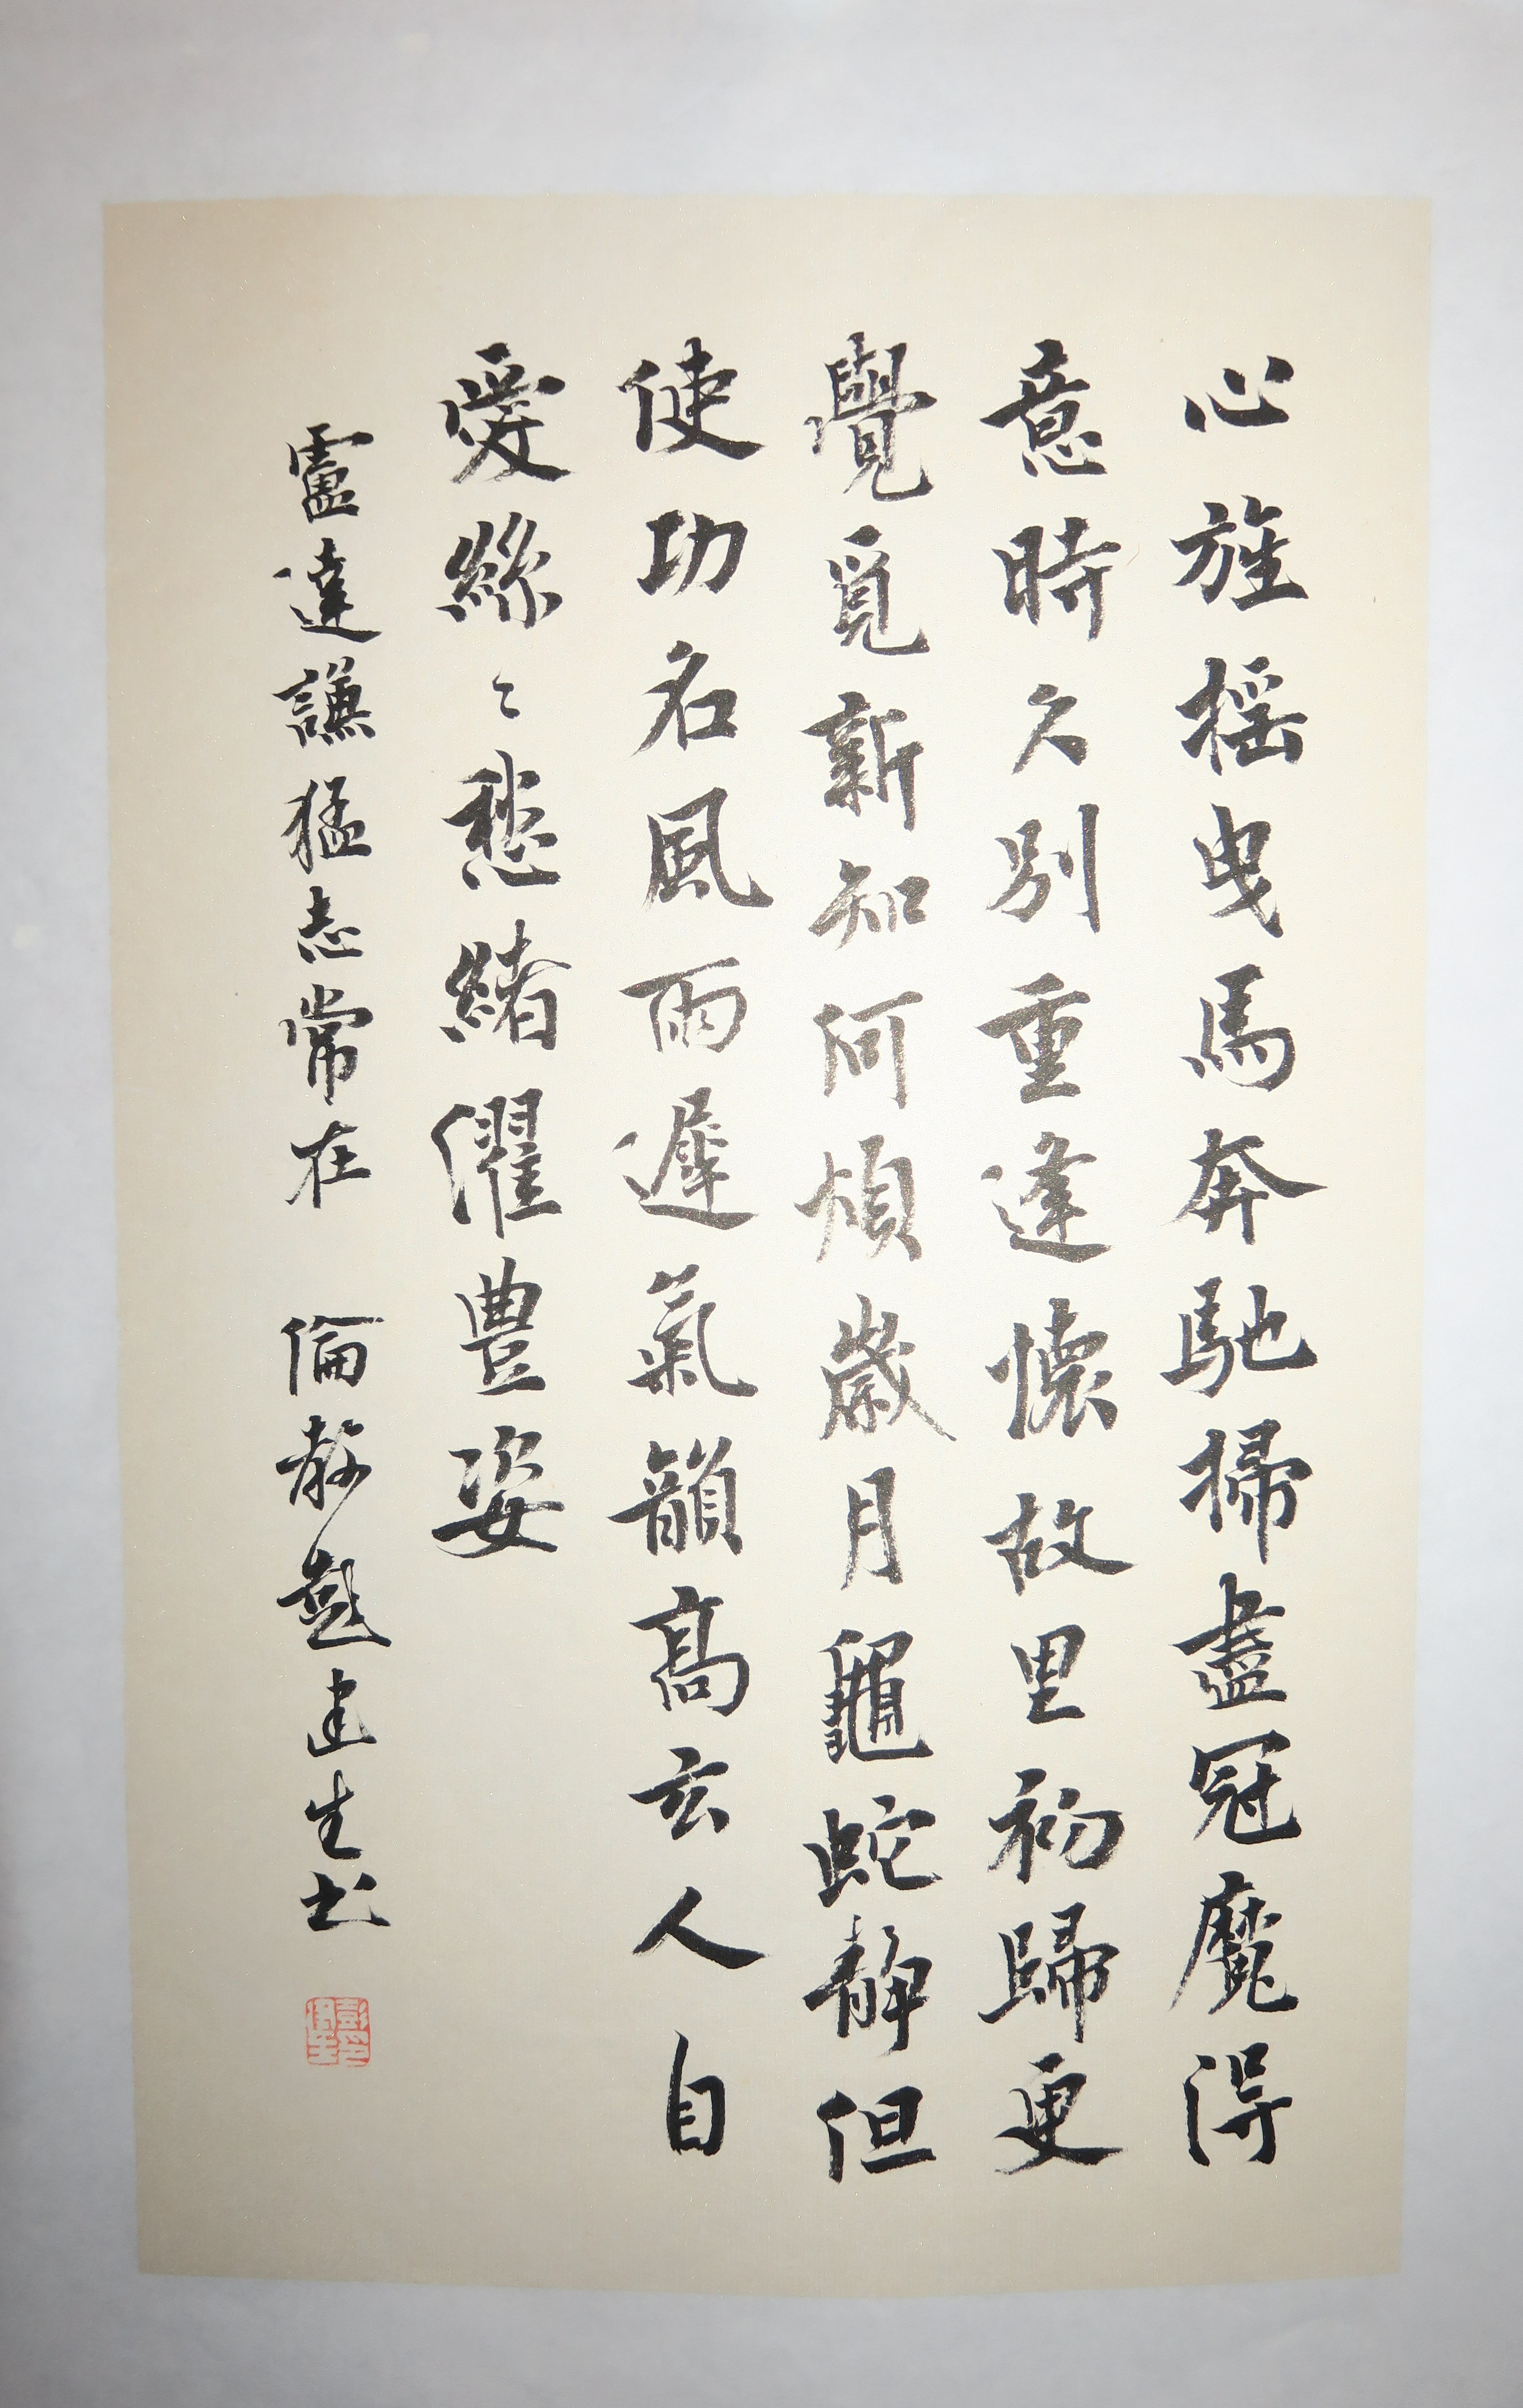 心旌摇曳馬奔馳掃盡冠魔得
意時久別重逢懷故里初歸更
覺覓新知何煩歲月龜蛇靜但
使功名風雨遲氣韻高玄人自
愛絲〻愁緒濯豊姿
盧達謙猛志常在 倫教彭建生书